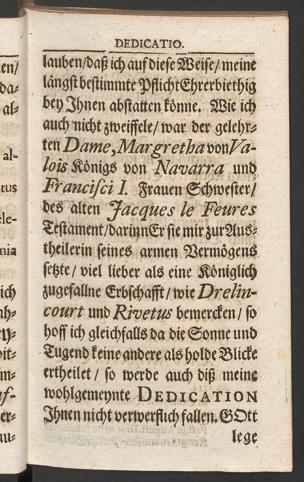 DEDICATIO.
lauben/daß ich auf diese Weise/meine
längst bestimmte Pflicht Ehrerbiethig
bey Ihnen abstatten könne. Wie ich
auch nicht zweiffele/war der gelehr-
ten Dame, Margretha von Va-
lois Königs von Navarra und
Francisci I. Frauen Schwester/
des alten Jacques le Feures
Testament/dariñ Er sie mir zur Aus-
theilerin seines armen Vermögens
setzte/viel lieber als eine Königlich
zugefallne Erbschafft/wie Drelin-
court und Rivetus bemercken/so
hoff ich gleichfalls da die Sonne und
Tugend keine andere als holde Blicke
ertheilet/so werde auch diß meine
wohlgemeynte DEDICATION
Ihnen nicht verwerflich fallen. GOtt
lege
en/
da-
al-
al-
tus
ele-
nia
ich
ah-
ey-
oit-
m-
uf-
er-
au-